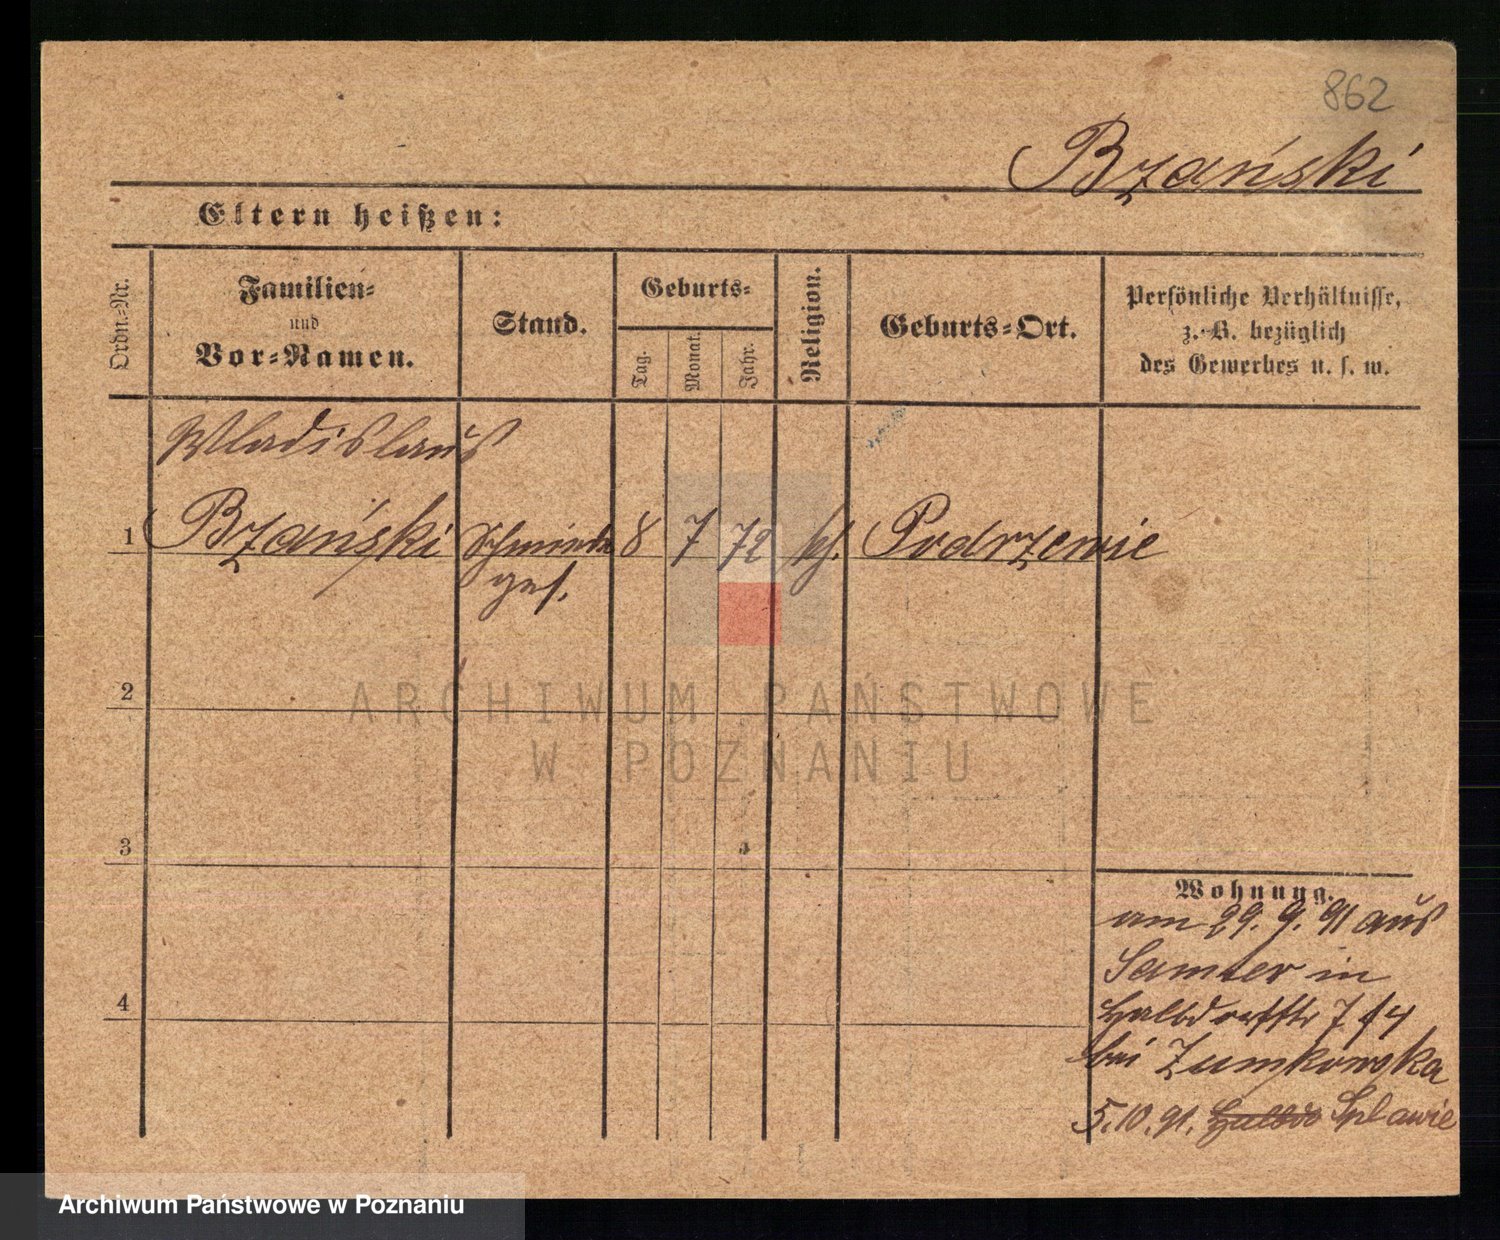 862
Bzański
Eltern heißen:
Ordn.-Nr.
Familien-
und
Vor-Namen.
Stand.
Geburts-
Tag.
Monat.
Jahr.
Religion.
Geburts-Ort.
Persönliche Verhältnisse,
z. B. bezüglich
des Gewerbes u. s. w.
Wladislaus
1 Bzański Schmiede 8 7 72 kth. Podrzewie
ges.
2
ARCHIWUM PAŃSTWOWE
W POZNANIU
3
Wohnung.
am 29. 9. 91 aus
Samter in
4
Halbdorfstr 7
bei Zumkowska
5.10.91. Halbdo Splawie
Archiwum Państwowe w Poznaniu